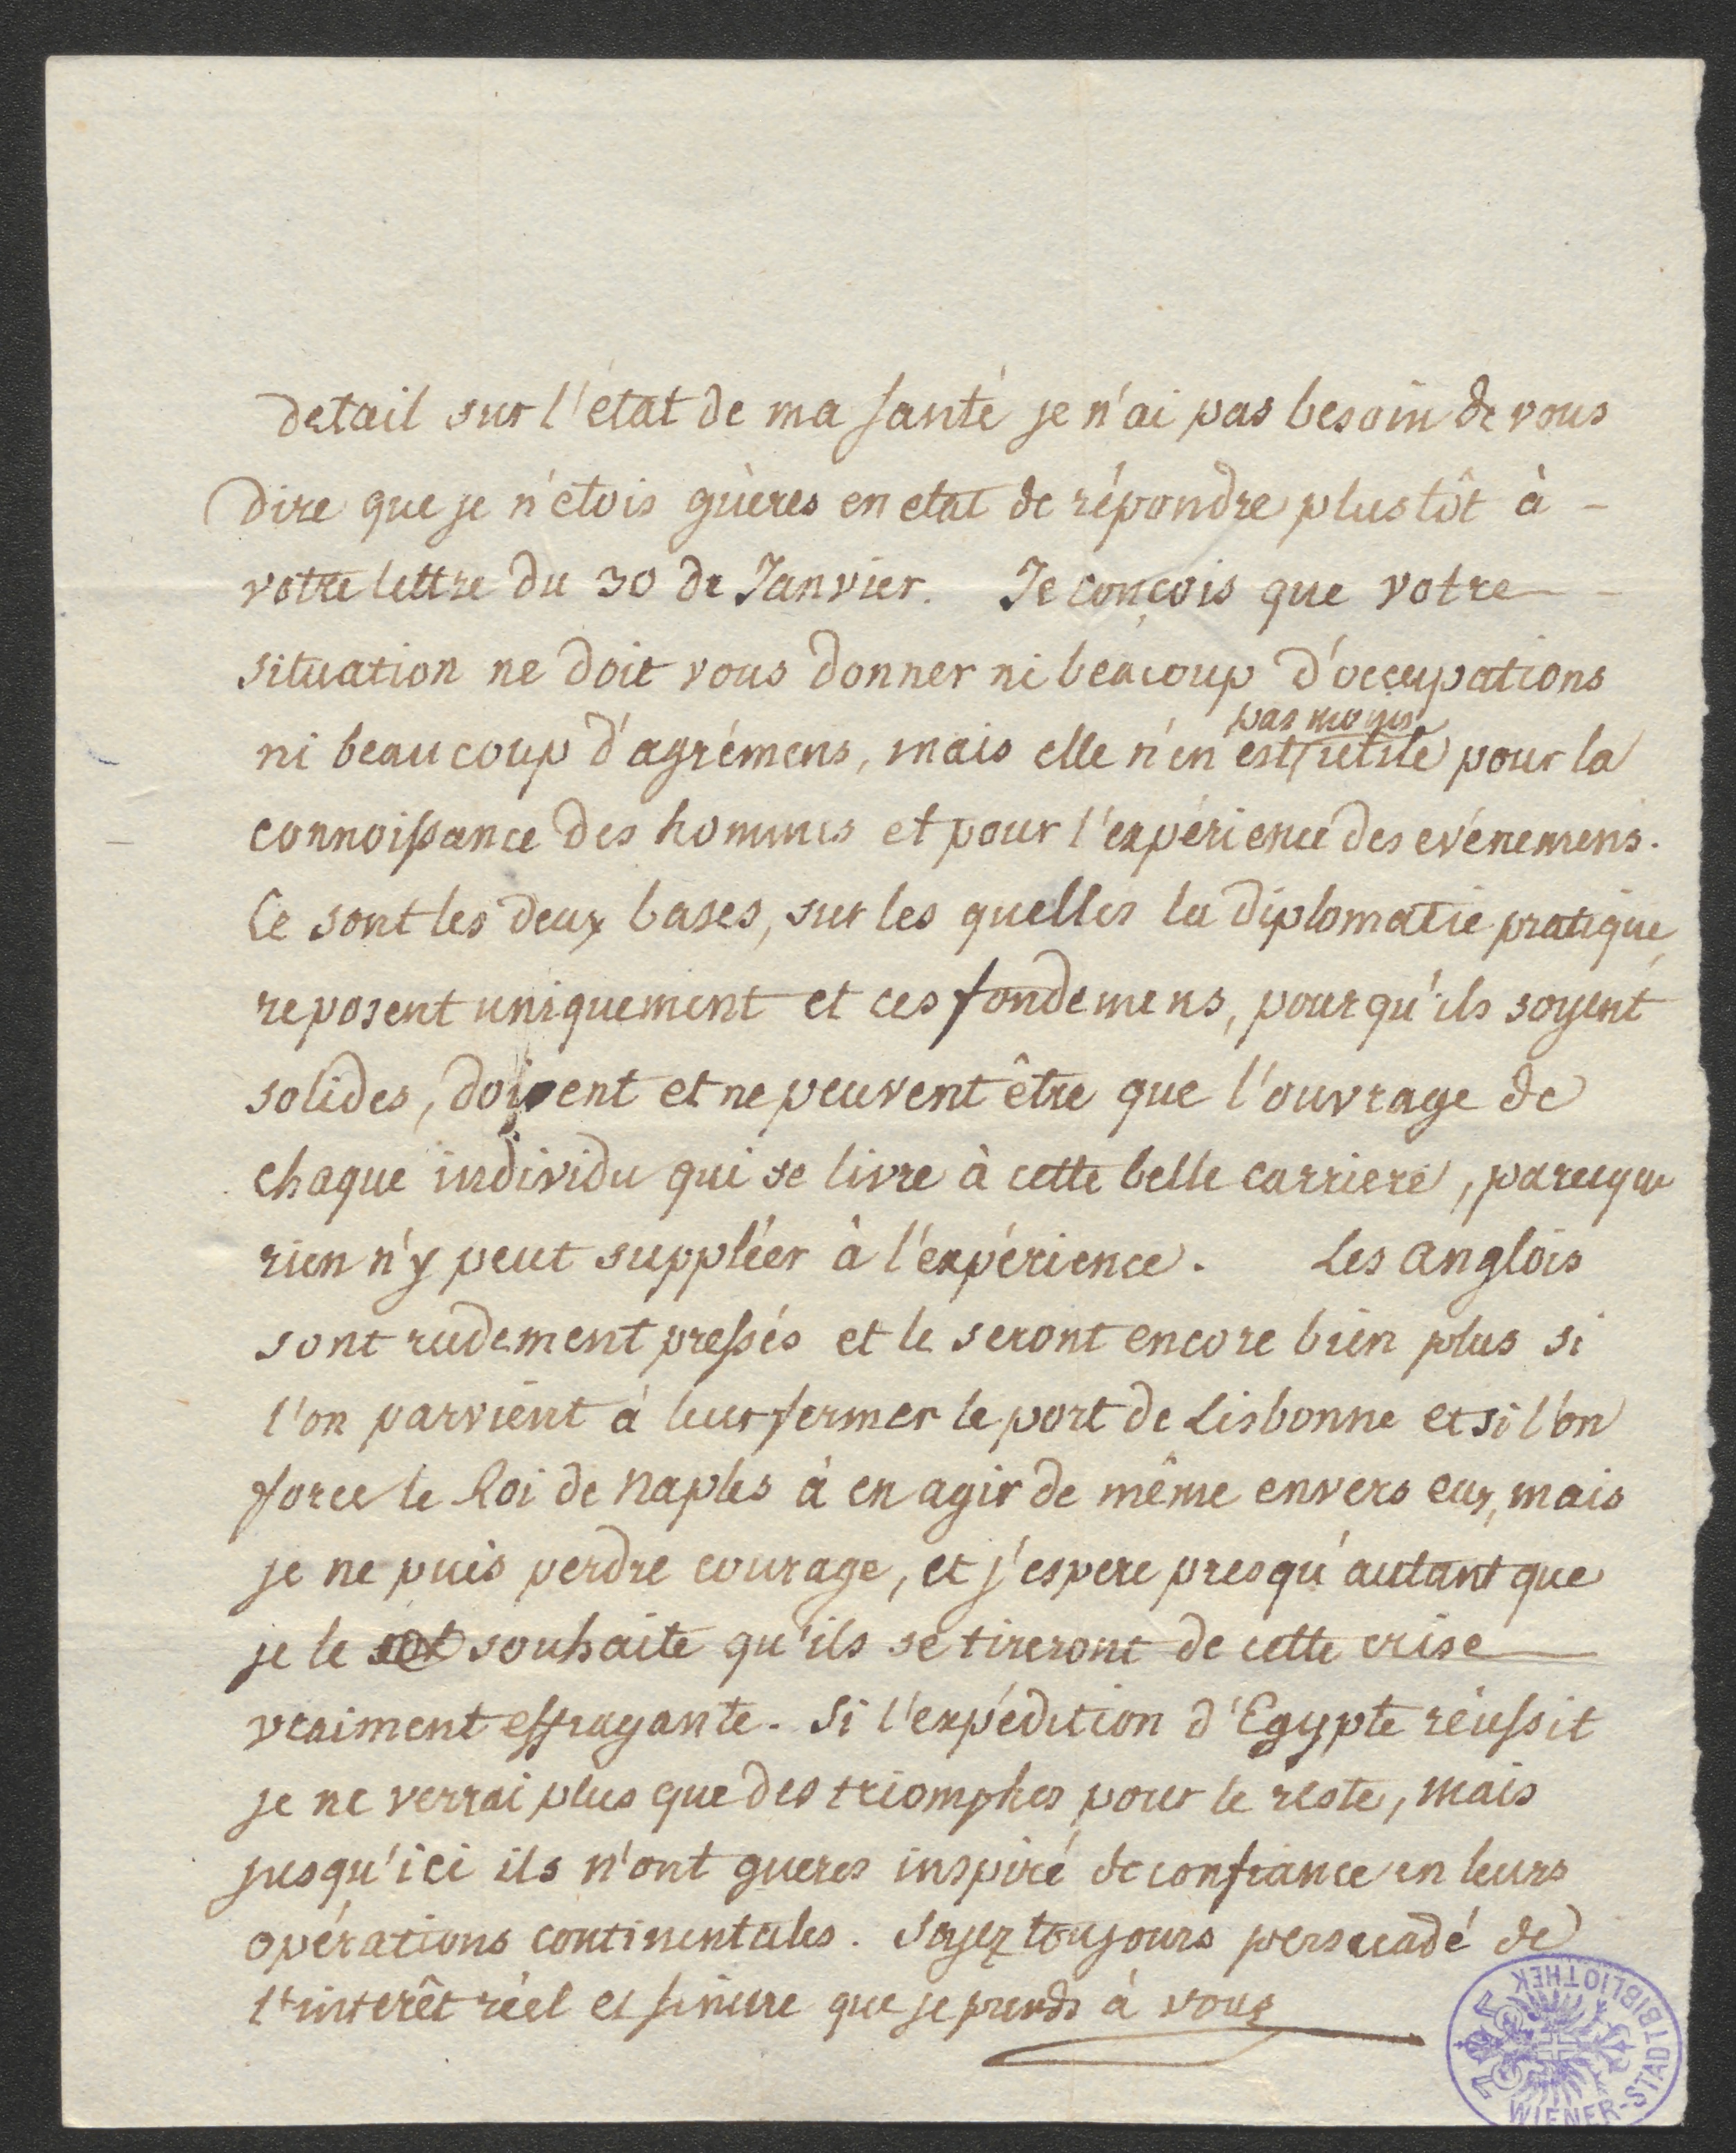 detail sur l'état de ma santé je n'ai pas besoin de vous
dire que je n'étois guères en etat de répondre plustôt à -
votre lettre du 30 de Janvier. Je conçois que votre
situation ne doit vous donner ni beacoup d'occupations
pas moins
ni beaucoup d'agrémens, mais elle n'en est utile pour la
connoissance des hommes et pour l'expérience des evénemens.
Ce sont les deux bases, sur les quelles la diplomatie pratique
reposent uniquement et ces fondemens, pour qu'ils soyent
solides, doivent et ne peuvent être que l'ouvrage de
chaque individu qui se livre à cette belle carriere, parceque
rien n'y peut suppléer à l'expérience. Les Anglois
sont rudement pressés et le seront encore bien plus si
l'on parvient à leur fermer le port de Lisbonne et si l'on
force le Roi de Naples à en agir de même envers eux, mais
je ne puis perdre courage, et j'espere presqu'autant que
je le souhaite qu'ils se tireront de cette crise
vraiment effrayante. Si l'expédition d'Egypte réussit
je ne verrai plus que des triomphes pour le reste, mais
jusqu'ici ils n'ont gueres inspiré de confiance en leurs
opérations continentales. Soyez toujours persuadé de
l'interêt réel et sincere que je prends à vous
WIENER-STADTBIBLIOTHEK